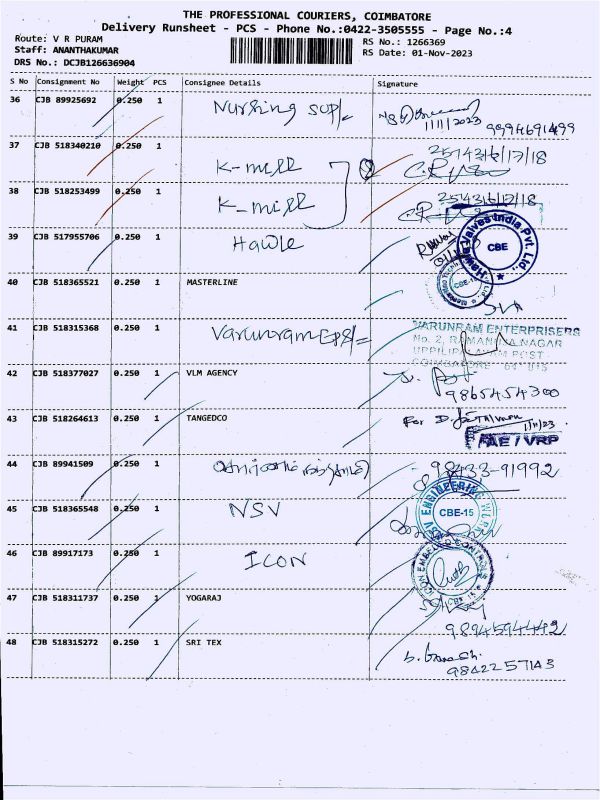 THE PROFESSIONAL COURIERS, COIMBATORE
Delivery Runsheet - PCS - Phone No.:0422-3505555 - Page No.:4
Route: V R PURAM
RS No.: 1266369
Staff: ANANTHAKUMAR
RS Date: 01-Nov-2023
DRS No.: DCJB126636904
S No Consignment No Weight PCS Consignee Details Signature
36 CJB 89925692 0.250 1 Nursing sup/-
1/11/2023 9994691499
37 CJB 518340210 0.250 1 K-mill
38 CJB 518253499 0.250 1 K-mill
39 CJB 517955706 0.250 1 Hawle
Hawle Valves India Pvt. Ltd.,
CBE
40 CJB 518365521 0.250 1 MASTERLINE
41 CJB 518315368 0.250 1 Varunram EPS/-
VARUNRAM ENTERPRISERS
No. 2, RAMANUJA NAGAR
UPPILIPALAYAM POST
COIMBATORE 641 015
42 CJB 518377027 0.250 1 VLM AGENCY
9865454300
43 CJB 518264613 0.250 1 TANGEDCO
For D.
1/11/23
AE / VRP
44 CJB 89941509 0.250 1
98433-91992
45 CJB 518365548 0.250 1 NSV
NSV ENGINEERING
CBE-15
46 CJB 89917173 0.250 1 ICON
ICON EMBEDDED CONTROLS
CBE 15
47 CJB 518311737 0.250 1 YOGARAJ
9894594442
48 CJB 518315272 0.250 1 SRI TEX
9842257143